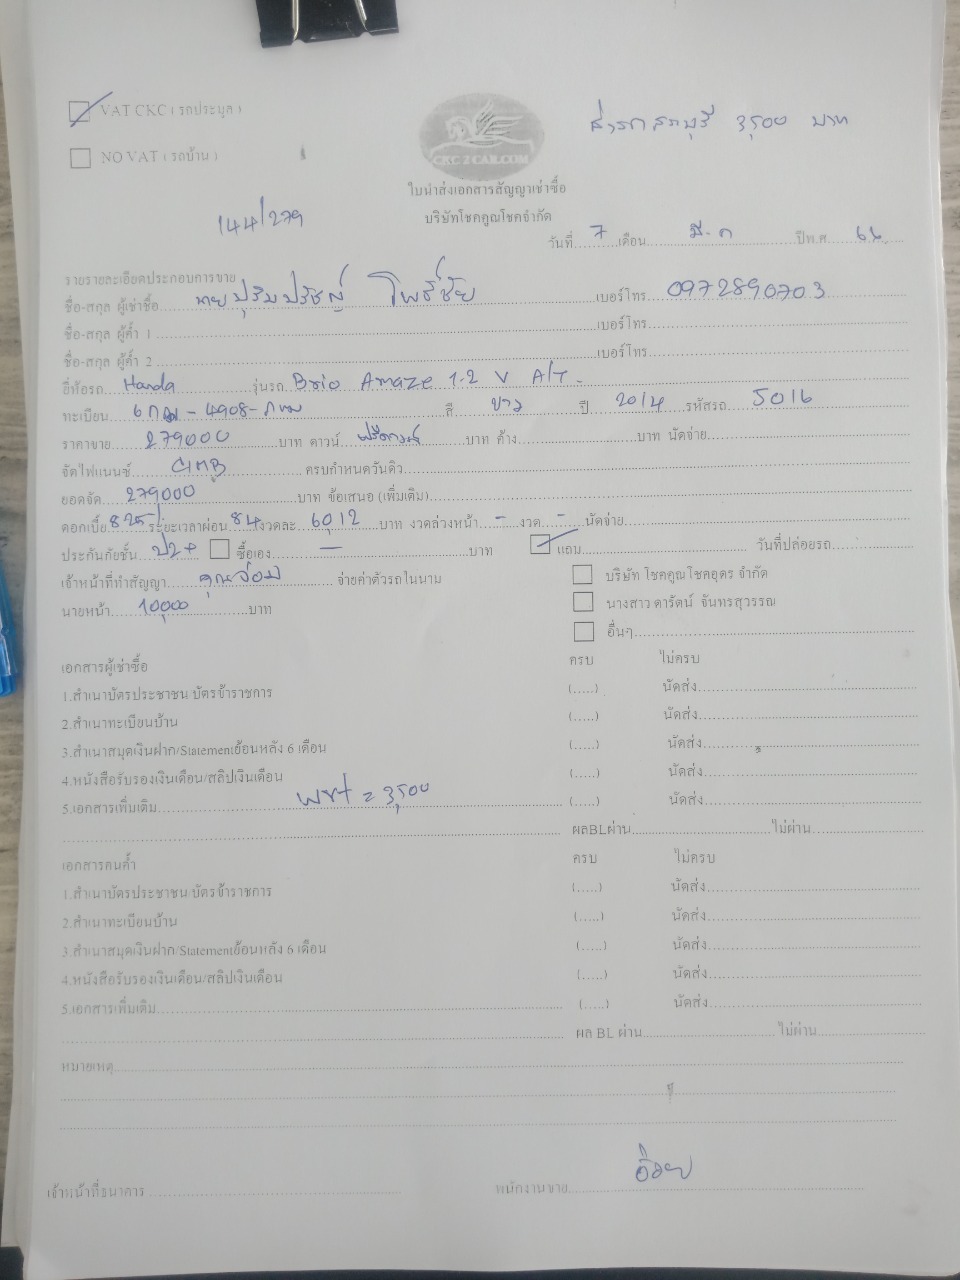 VAT CKC ( รถประมูล )
ส่งรถ สระบุรี 3,500 บาท
NO VAT ( รถบ้าน )
CKC2CAR.COM
ใบนำส่งเอกสารสัญญาเช่าซื้อ
144/279
บริษัทโชคคูณโชคจำกัด
วันที่ 7 เดือน มี.ค ปีพ.ศ 66
รายรายละเอียดประกอบการขาย
ชื่อ-สกุล ผู้เช่าซื้อ นาย โพธิ์ชัย เบอร์โทร 0972890703
ชื่อ-สกุล ผู้ค้ำ 1 เบอร์โทร
ชื่อ-สกุล ผู้ค้ำ 2 เบอร์โทร
ยี่ห้อรถ Honda รุ่นรถ Brio Amaze 1.2 V A/T
ทะเบียน 4908 - กทม สี ขาว ปี 2014 รหัสรถ 5016
ราคาขาย 279000 บาท ดาวน์ ฟรีดาวน์ บาท ค้าง บาท นัดจ่าย
จัดไฟแนนซ์ CIMB ครบกำหนดวันดิว
ยอดจัด 279000 บาท ข้อเสนอ (เพิ่มเติม)
ดอกเบี้ย 8.25 ระยะเวลาผ่อน 84 งวดละ 6,012 บาท งวดล่วงหน้า - งวด - นัดจ่าย
ประกันภัยชั้น ป2+ ซื้อเอง - บาท แถม วันที่ปล่อยรถ
เจ้าหน้าที่ทำสัญญา คุณอ้อม จ่ายค่าตัวรถในนาม บริษัท โชคคูณโชคอุดร จำกัด
นายหน้า 10,000 บาท นางสาว ดารัตน์ จันทรสุวรรณ
อื่นๆ
เอกสารผู้เช่าซื้อ ครบ ไม่ครบ
1.สำเนาบัตรประชาชน/บัตรข้าราชการ (.....) นัดส่ง
2.สำเนาทะเบียนบ้าน (.....) นัดส่ง
3.สำเนาสมุดเงินฝาก/Statementย้อนหลัง 6 เดือน (.....) นัดส่ง
4.หนังสือรับรองเงินเดือน/สลิปเงินเดือน (.....) นัดส่ง
5.เอกสารเพิ่มเติม = 3,500 (.....) นัดส่ง
ผลBLผ่าน ไม่ผ่าน
เอกสารคนค้ำ ครบ ไม่ครบ
1.สำเนาบัตรประชาชน/บัตรข้าราชการ (.....) นัดส่ง
2.สำเนาทะเบียนบ้าน (.....) นัดส่ง
3.สำเนาสมุดเงินฝาก/Statementย้อนหลัง 6 เดือน (.....) นัดส่ง
4.หนังสือรับรองเงินเดือน/สลิปเงินเดือน (.....) นัดส่ง
5.เอกสารเพิ่มเติม (.....) นัดส่ง
ผล BL ผ่าน ไม่ผ่าน
หมายเหตุ
เจ้าหน้าที่ธนาคาร พนักงานขาย